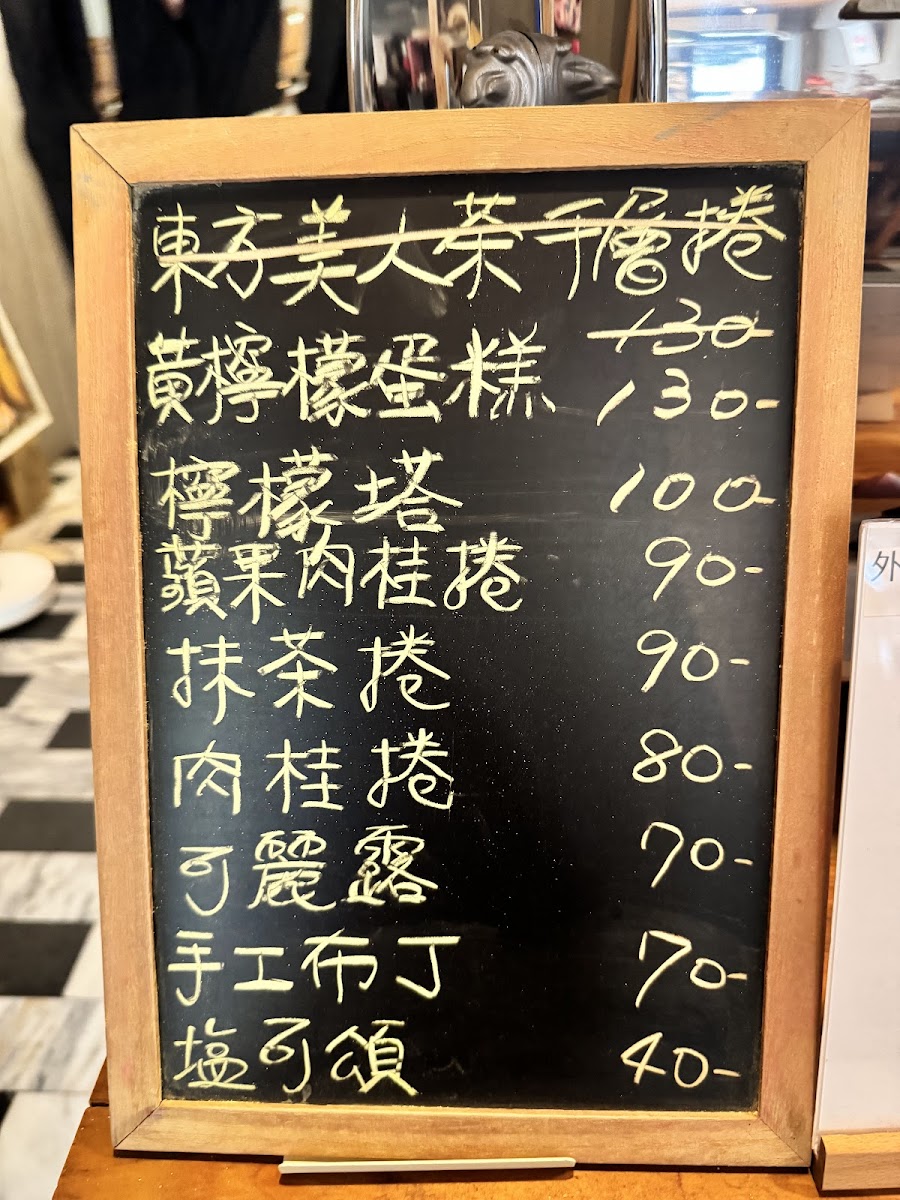 東方美人茶千層捲
130
黃檸檬蛋糕 130-
檸檬塔 100-
蘋果肉桂捲 90-
抹茶捲 90-
肉桂捲 80-
可麗露 70-
手工布丁 70-
塩可頌 40-
外